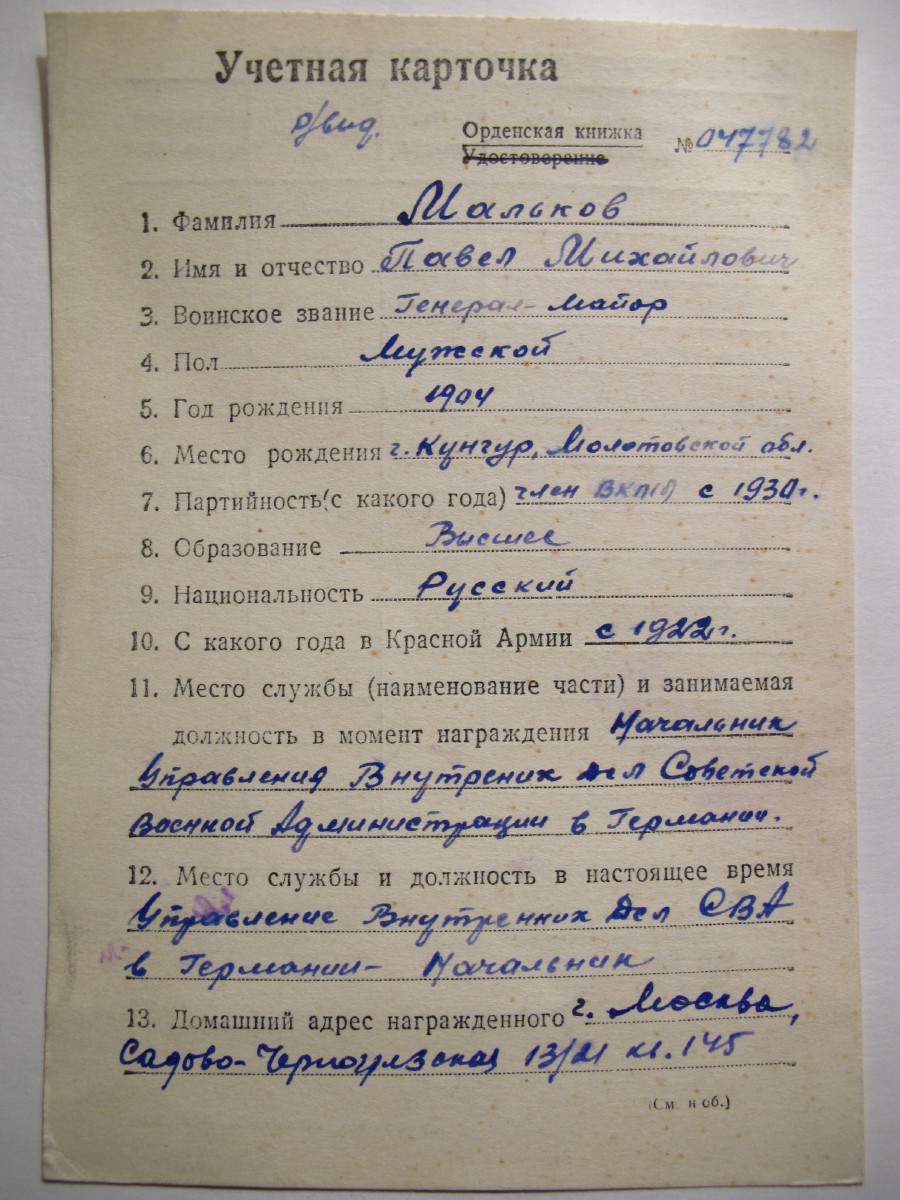 Учетная карточка
Орденская книжка
Удостоверение
№ 047782
1. Фамилия Мальков
2. Имя и отчество Павел Михайлович
3. Воинское звание Генерал-майор
4. Пол Мужской
5. Год рождения 1904
6. Место рождения г. Кунгур, Молотовской обл.
7. Партийность (с какого года) член ВКП(б) с 1930г.
8. Образование Высшее
9. Национальность Русский
10. С какого года в Красной Армии с 1922г.
11. Место службы (наименование части) и занимаемая
должность в момент награждения Начальник
Управления Внутрених Дел Советской
Военной Администрации в Германии.
12. Место службы и должность в настоящее время
Управление Внутренних Дел СВА
в Германии- Начальник
13. Домашний адрес награжденного г. Москва,
Садово-Черногрязская 13/21 кв. 145
(См. н об.)